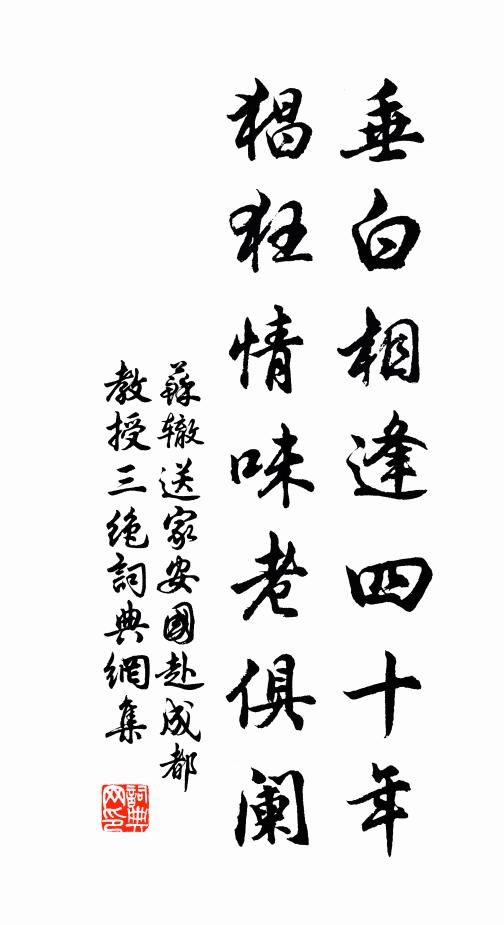 垂白相逢四十年
猖狂情味老俱阑
蘇辙送家安國赴成都
教授三绝詞典網集
詞典网印